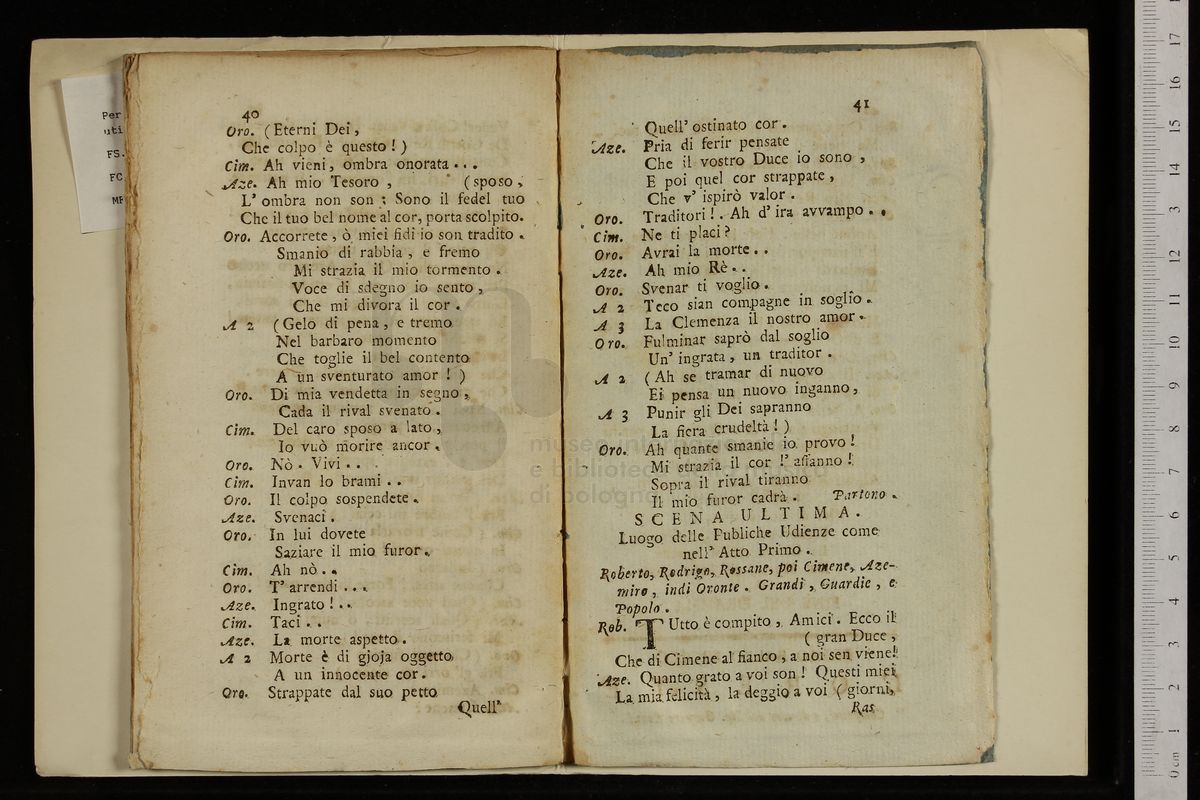 Per
uti
FS.
FC
MF
40
Oro. (Eterni Dei,
Che colpo è questo! )
Cim. Ah vieni, ombra onorata...
Aze. Ah mio Tesoro , (sposo,
L' ombra non son : Sono il fedel tuo
Che il tuo bel nome al cor, porta scolpito.
Oro. Accorrete, ò miei fidi io son tradito.
Smanio di rabbia, e fremo
Mi strazia il mio tormento.
Voce di sdegno io sento,
Che mi divora il cor.
A 2 (Gelo di pena, e tremo
Nel barbaro momento
Che toglie il bel contento
A un sventurato amor ! )
Oro. Di mia vendetta in segno,
Cada il rival svenato.
Cim. Del caro sposo a lato,
Io vuò morire ancor.
Oro. Nò. Vivi..
Cim. Invan lo brami..
Oro. Il colpo sospendete.
Aze. Svenaci.
Oro. In lui dovete
Saziare il mio furor.
Cim. Ah nò..
Oro. T' arrendi...
Aze. Ingrato!..
Cim. Taci..
Aze. La morte aspetto.
A 2 Morte è di gioja oggetto
A un innocente cor.
Oro. Strappate dal suo petto
Quell'
41
Quell' ostinato cor.
Aze. Pria di ferir pensate
Che il vostro Duce io sono,
E poi quel cor strappate,
Che v' ispirò valor.
Oro. Traditori!. Ah d' ira avvampo..
Cim. Ne ti placi?
Oro. Avrai la morte..
Aze. Ah mio Rè..
Oro. Svenar ti voglio.
A 2 Teco sian compagne in soglio.
A 3 La Clemenza il nostro amor.
Oro. Fulminar saprò dal soglio
Un' ingrata, un traditor.
A 2 (Ah se tramar di nuovo
Ei pensa un nuovo inganno,
A 3 Punir gli Dei sapranno
La fiera crudeltà! )
Oro. Ah quante smanie io provo!
Mi strazia il cor l' affanno!
Sopra il rival tiranno
Il mio furor cadrà. Partono.
SCENA ULTIMA.
Luogo delle Publiche Udienze come
nell' Atto Primo.
Roberto, Rodrigo, Rossane, poi Cimene, Aze-
miro, indi Oronte. Grandi, Guardie, e
Popolo.
Rob. TUtto è compito, Amici. Ecco il
( gran Duce,
Che di Cimene al fianco, a noi sen viene!
Aze. Quanto grato a voi son! Questi miei
La mia felicità, la deggio a voi ( giorni,
Ras
museo internazionale
e biblioteca della musica
di bologna